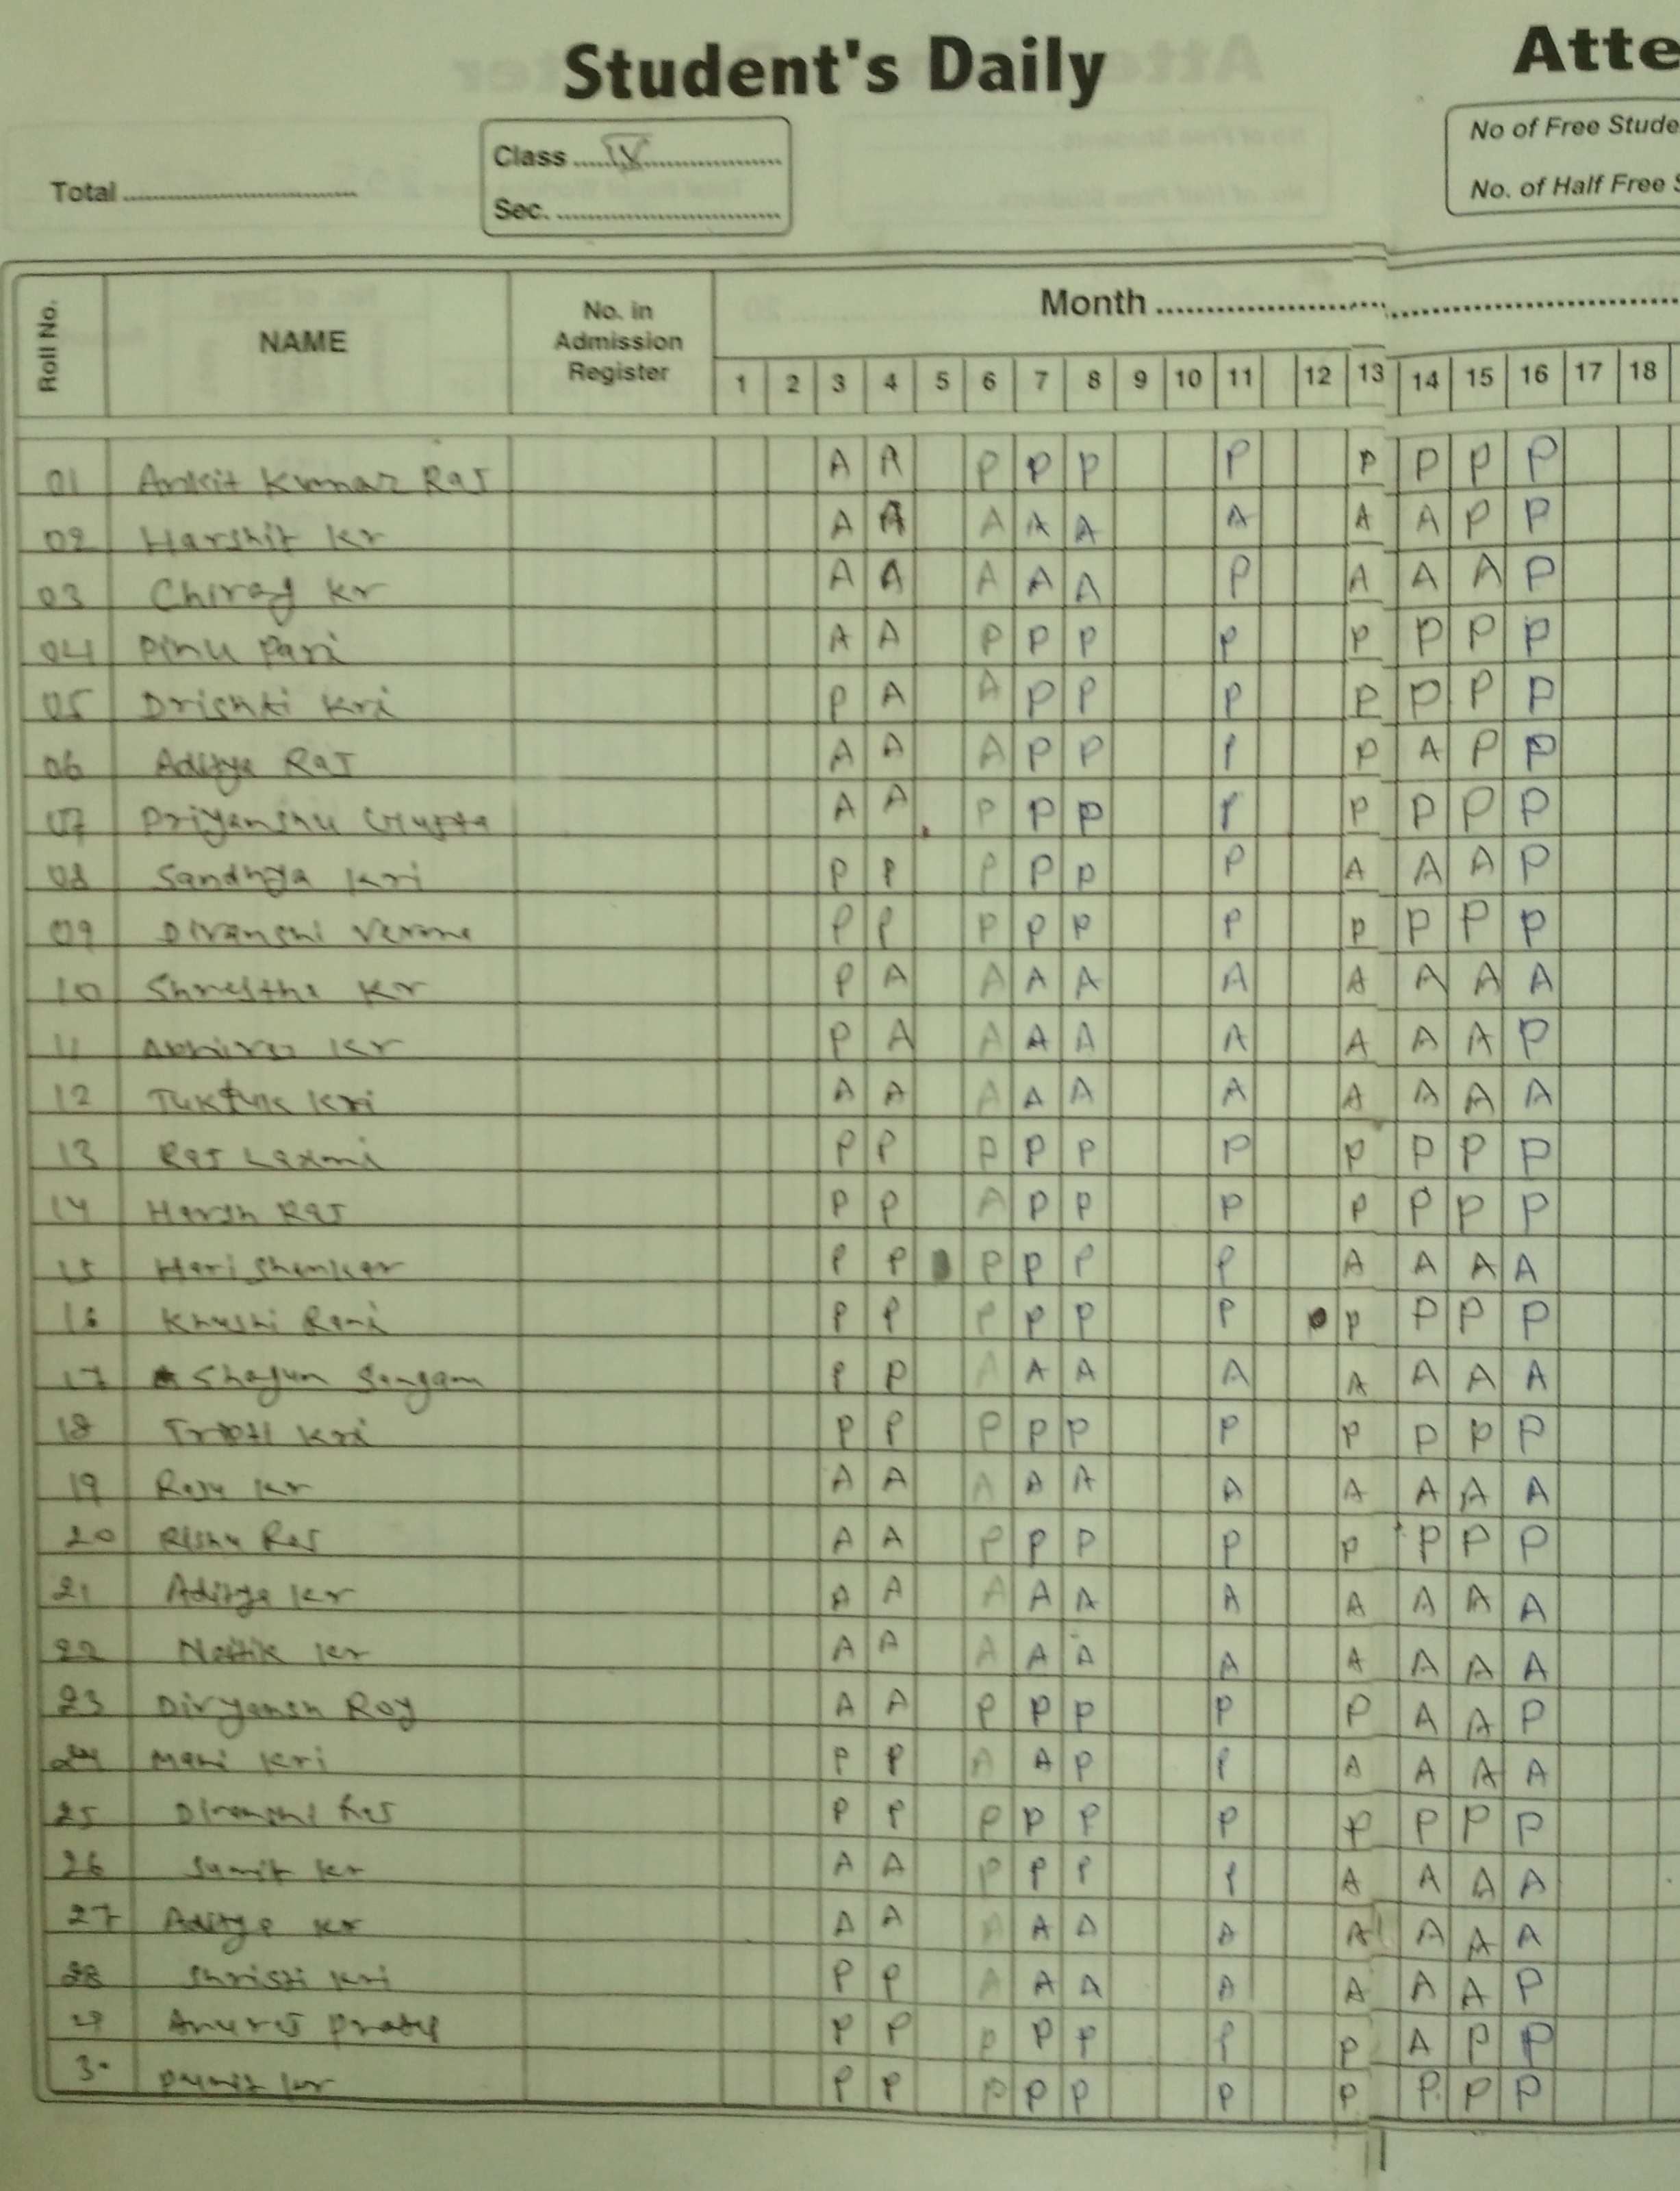 Student's Daily
Atte
Total
Class IV
Sec.
No of Free Stude
No. of Half Free S
Roll No. NAME No. in Admission Register Month
1 2 3 4 5 6 7 8 9 10 11 12 13 14 15 16 17 18
01 Ankit Kumar Raj A A P P P P P P P P
02 Harshit Kr A A A A A A A A P P
03 Chirag Kr A A A A A P A A A P
04 Pinu Pari A A P P P P P P P P
05 Drishti Kri P A A P P P P P P P
06 Aditya Raj A A A P P P P A P P
07 Priyanshu Gupta A A P P P P P P P P
08 Sandhya Kri P P P P P P A A A P
09 Divanshi Verma P P P P P P P P P P
10 Shrestha Kr P A A A A A A A A A
11 Kr P A A A A A A A A P
12 Tuktuk Kri A A A A A A A A A A
13 Raj Laxmi P P P P P P P P P P
14 Harsh Raj P P A P P P P P P P
15 Hari Shankar P P P P P P A A A A
16 Khushi Rani P P P P P P P P P P
17 Shagun Sangam P P A A A A A A A A
18 Tripti Kri P P P P P P P P P P
19 Raju Kr A A A A A A A A A A
20 Rishu Raj A A P P P P P P P P
21 Aditya Kr A A A A A A A A A A
22 Naitik Kr A A A A A A A A A A
23 Divyansh Roy A A P P P P P A A P
24 Mani Kri P P A A P P A A A A
25 Divanshi Raj P P P P P P P P P P
26 Sumit Kr A A P P P P A A A A
27 Aditya Kr A A A A A A A A A A
28 Shristi Kri P P A A A A A A A P
29 P P P P P P P A P P
30 Kr P P P P P P P P P P